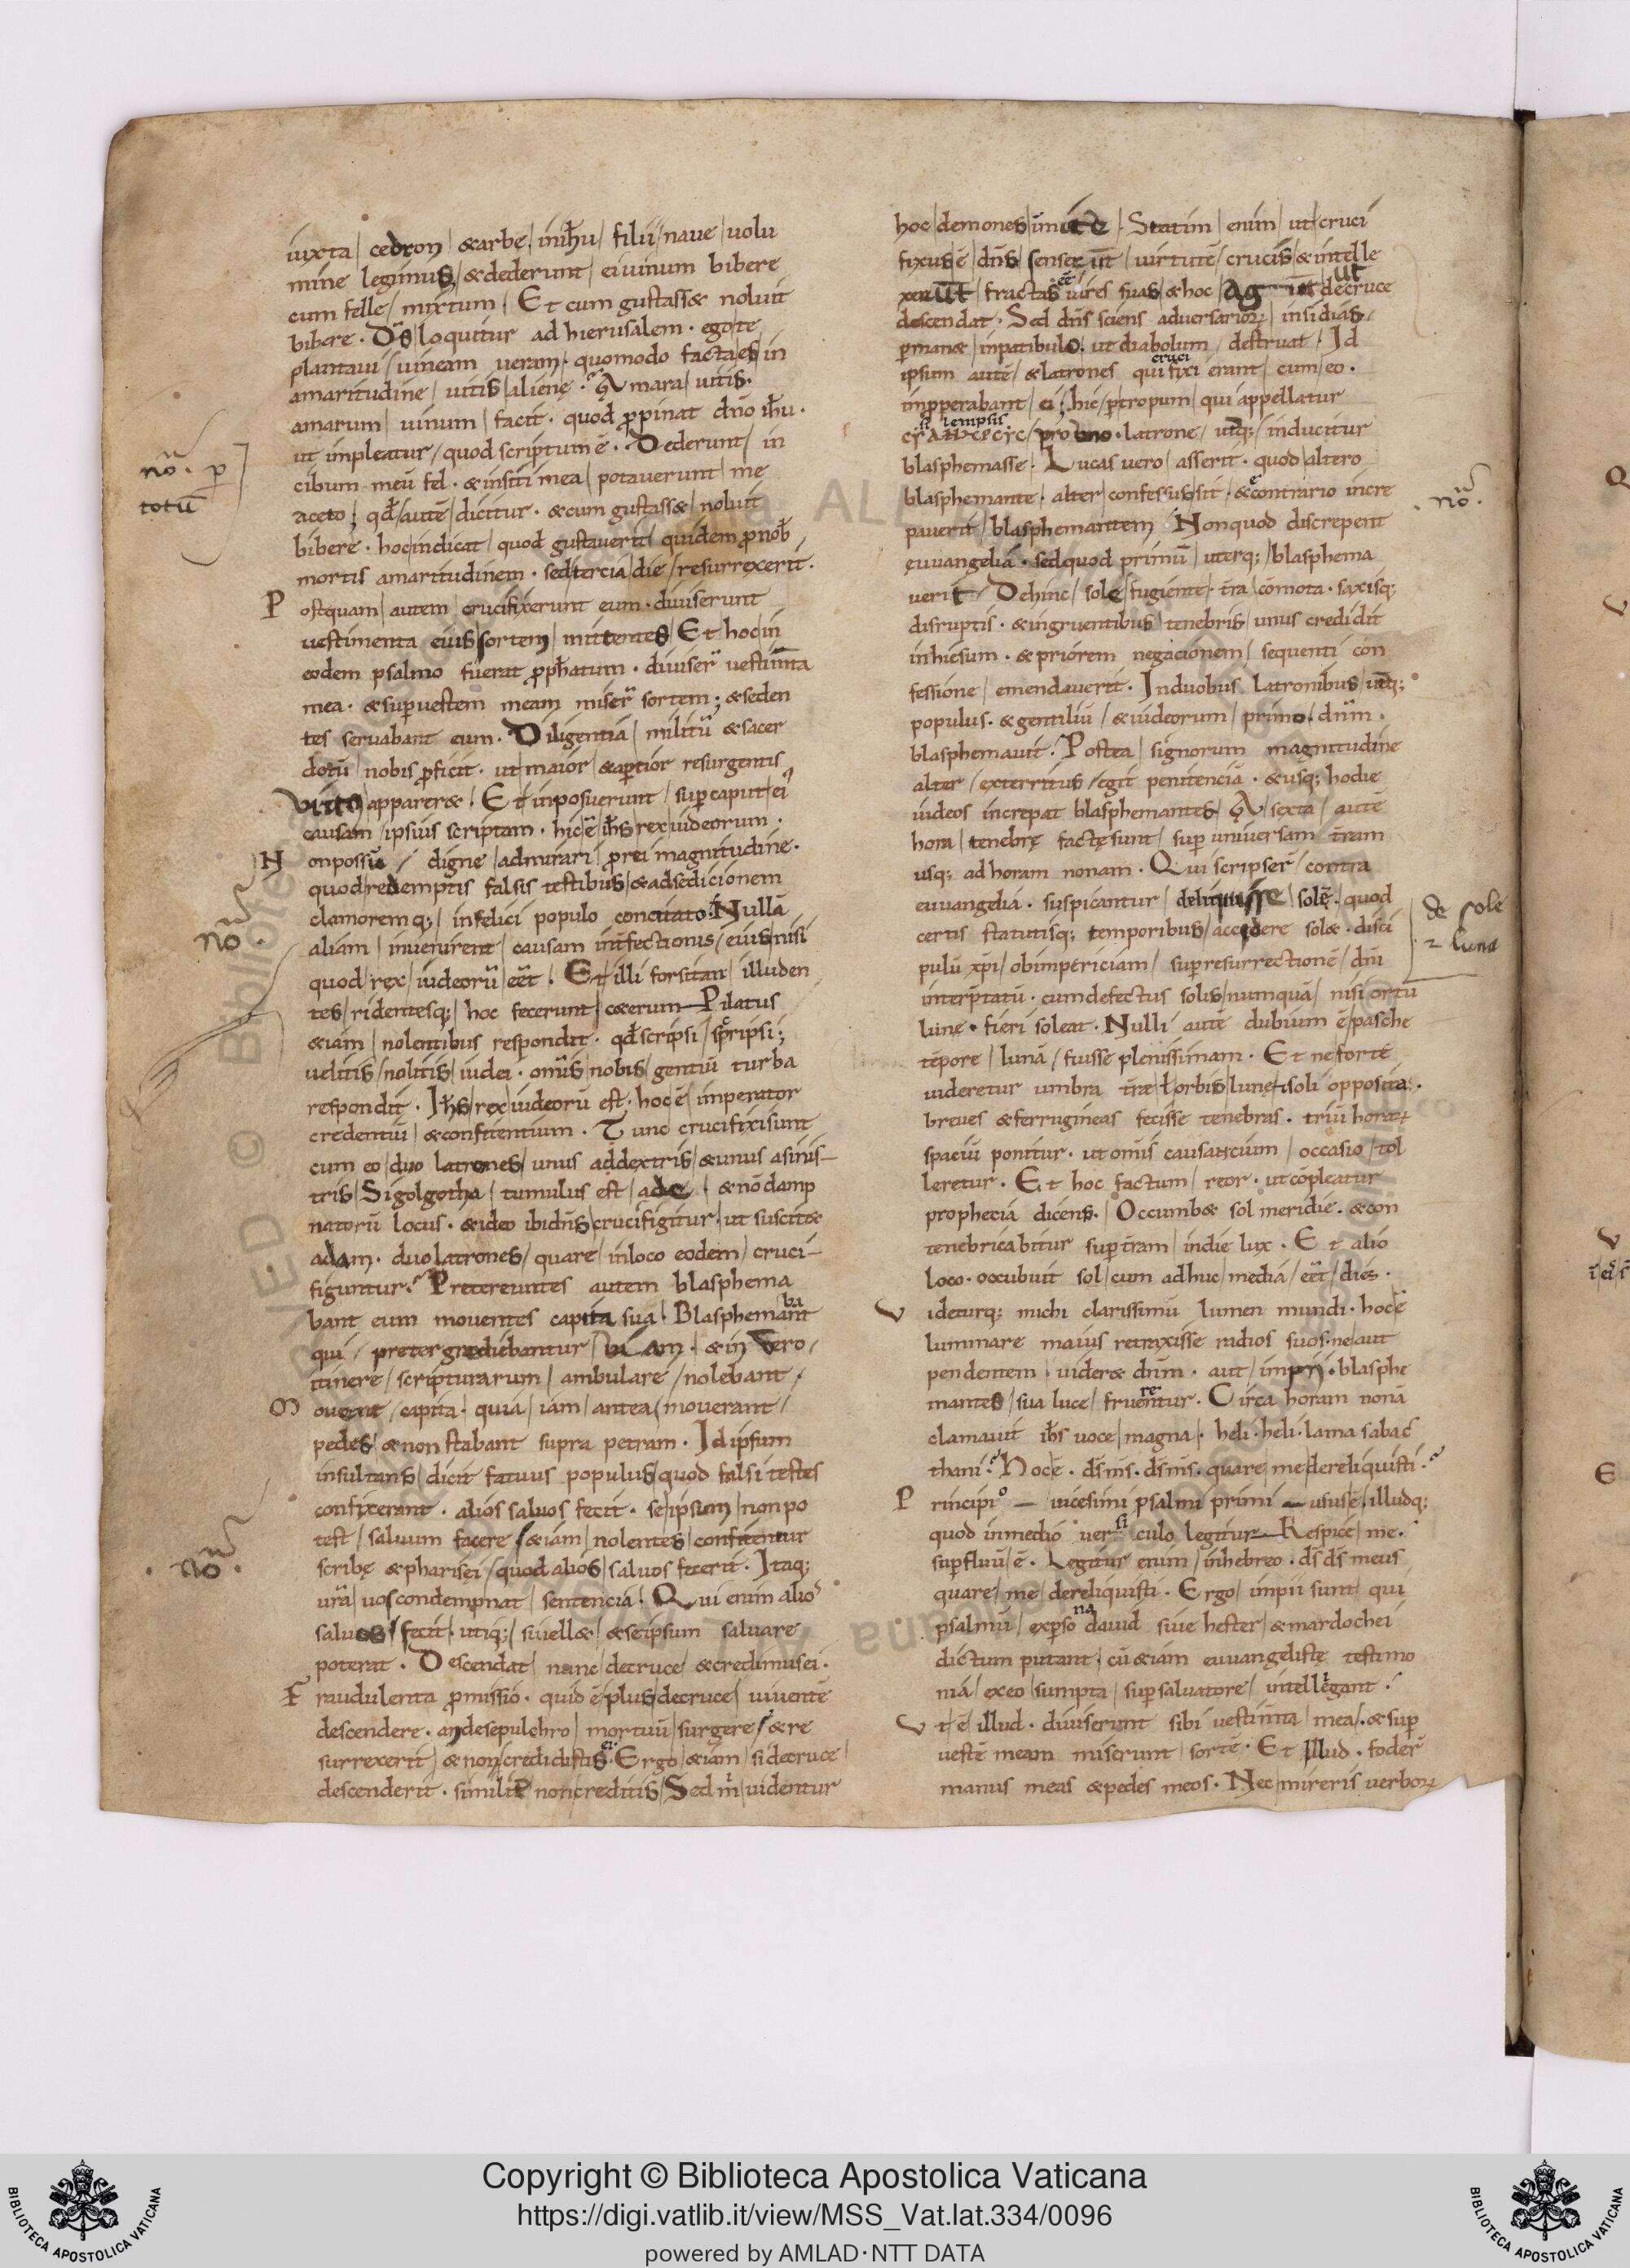 iuxta cedron & arbe. in ihu filii naue uolu
mine legimus. & dederunt ei uinum bibere
cum felle mixtum. Et cum gustass& noluit
bibere. Ds loquitur ad hierusalem. ego te
plantaui uineam ueram. quomodo facta es in
amaritudine uitis aliene. Amara uitis.
amarum uinum facit. quod propinat dno ihu.
ut impleatur quod scriptum ē. Dederunt in
cibum meū fel. & in siti mea potauerunt me
aceto; qd autē dicitur. & cum gustass& noluit
bibere. hoc indicat quod gustauerit quidem pro nob
mortis amaritudinem. sed tercia die resurrexerit.
Postquam autem crucifixerunt eum. diuiserunt
uestimenta eius sortem mittentes. Et hoc in
eodem psalmo fuerat pphatum. diuiser uestimta
mea. & sup uestem meam miser sortem; & seden
tes seruabant eum. Diligentiā militū & sacer
dotū nobis proficit. ut maior & aptior resurgentis
uirtus apparer&. Et inposuerunt sup caput ei
causam ipsius scriptam. hic ē ihs rex iudeorum.
Non possū digne admirari pro rei magnitudine.
quod redemptis falsis testibus & ad sedicionem
clamoremq; infelici populo concitato. Nullā
aliam inuenirent causam interfectionis eius nisi
quod rex iudeorū eēt. Et illi forsitan illuden
tes ridentesq; hoc fecerunt c&erum Pilatus
&iam nolentibus respondit. qd scripsi scripsi;
uelitis nolitis iudei. omis nobis gentiū turba
respondit. Ihs rex iudeorū est. hoc ē imperator
credentiū & confitentium. Tunc crucifixi sunt
cum eo duo latrones unus a dextris & unus a sinis
tris. Si golgotha tumulus est ade & nō damp
natorū locus. & ideo ibi dns crucifigitur ut suscit&
adam. duo latrones quare in loco eodem cruci
figuntur? Pretereuntes autem blasphema
bant eum mouentes capita sua. Blasphemabant
qui pretergrediebantur uiam. & in uero
itinere scripturarum ambulare nolebant
Mouebant capita. quia iam antea mouerant
pedes & non stabant supra petram. Id ipsum
insultans dicit fatuus populus quod falsi testes
confixerant. alios saluos fecit. se ipsum non po
test saluum facere &iam nolentes confitentur
scribe & pharisei quod alios saluos fecerit. Itaq;
urā uos condempnat sentencia. Qui enim alios
saluos fecit. utiq; si uell& & se ipsum saluare
poterat. Descendat nunc de cruce & credimus ei.
Fraudulenta promissio. quid ē plus de cruce uiuentē
descendere. an de sepulchro mortuū surgere & re
surrexerit & non credidistis ei. Ergo &iam si de cruce
descenderit. similiter non creditis. Sed m uidentur
nō. p
totū
nō.
nō.
hoc demones inmitte. Statim enim ut cruci
fixus ē dns senser ut uirtutē crucis & intelle
xer ut fractas eē uires suas & hoc ag ut de cruce
descendat. Sed dns sciens aduersariorum insidias
permanet in patibulo. ut diabolum destruat. Id
ipsum autē & latrones qui cruci fixi erant cum eo.
improperabant ei; hic per tropum qui appellatur
pro uno latrone uterq; inducitur
blasphemasse. Lucas uero asserit. quod altero
blasphemante. alter confessus sit. & e contrario incre
pauerit blasphemantem. Non quod discrepent
euuangelia. sed quod primū uterq; blasphema
uerit. Dehinc sole fugiente. tra cōmota. saxisq;
disruptis. & ingruentibus tenebris unus credidit
in hiesum. & priorem negacionem sequenti con
fessione emendauerit. In duobus latronibus uterq;
populus. & gentiliū & iudeorum primo dnm
blasphemauit. Postea signorum magnitudine
alter exterritus egit penitenciā. & usq; hodie
iudeos increpat blasphemantes. A sexta autē
hora tenebre facte sunt sup uniuersam tram
usq; ad horam nonam. Qui scripser contra
euuangelia. suspicantur deliquisse sole. quod
certis statutisq; temporibus accidere sol&. disci
pulū xpi ob impericiam sup resurrectionē dni
interpretatū. cum defectus solis numquā nisi ortu
lune fieri soleat. Nulli autē dubium ē pasche
tēpore lunā fuisse plenissimam. Et ne forte
uideretur umbra tre t orbis lune soli opposita.
breues & ferrugineas fecisse tenebras. triū horarum
spaciū ponitur. ut omis causantium occasio tol
leretur. Et hoc factum reor. ut cōpleatur
prophecia dicens. Occumb& sol meridie. & con
tenebricabitur sup tram in die lux. Et alio
loco. occubuit sol cum adhuc media eēt dies.
Videturq; michi clarissimū lumen mundi. hoc ē
luminare maius retraxisse radios suos. ne aut
pendentem uider& dnm. aut impii blasphe
mantes sua luce fruerentur. Circa horam nonā
clamauit ihs uoce magna. heli. heli. lama sabac
thani? Hoc ē. ds ms. ds ms. quare me dereliquisti?
Principio uicesimi psalmi primi usus ē. illudq;
quod in medio uersiculo legitur Respice me.
supfluū ē. Legitur enim in hebreo. ds ds meus
quare me dereliquisti. Ergo impii sunt qui
psalmū ex psona dauid siue hester & mardochei
dictum putant. cū &iam euuangeliste testimo
nia ex eo sumpta sup saluatore intelligant.
Vt ē illud. diuiserunt sibi uestimta mea. & sup
uestē meam miserunt sortē. Et illud. foder
manus meas & pedes meos. Nec mireris uerborum
nō.
de sole
& luna
Copyright © Biblioteca Apostolica Vaticana
https://digi.vatlib.it/view/MSS_Vat.lat.334/0096
powered by AMLAD·NTT DATA
BIBLIOTECA APOSTOLICA VATICANA
BIBLIOTECA APOSTOLICA VATICANA